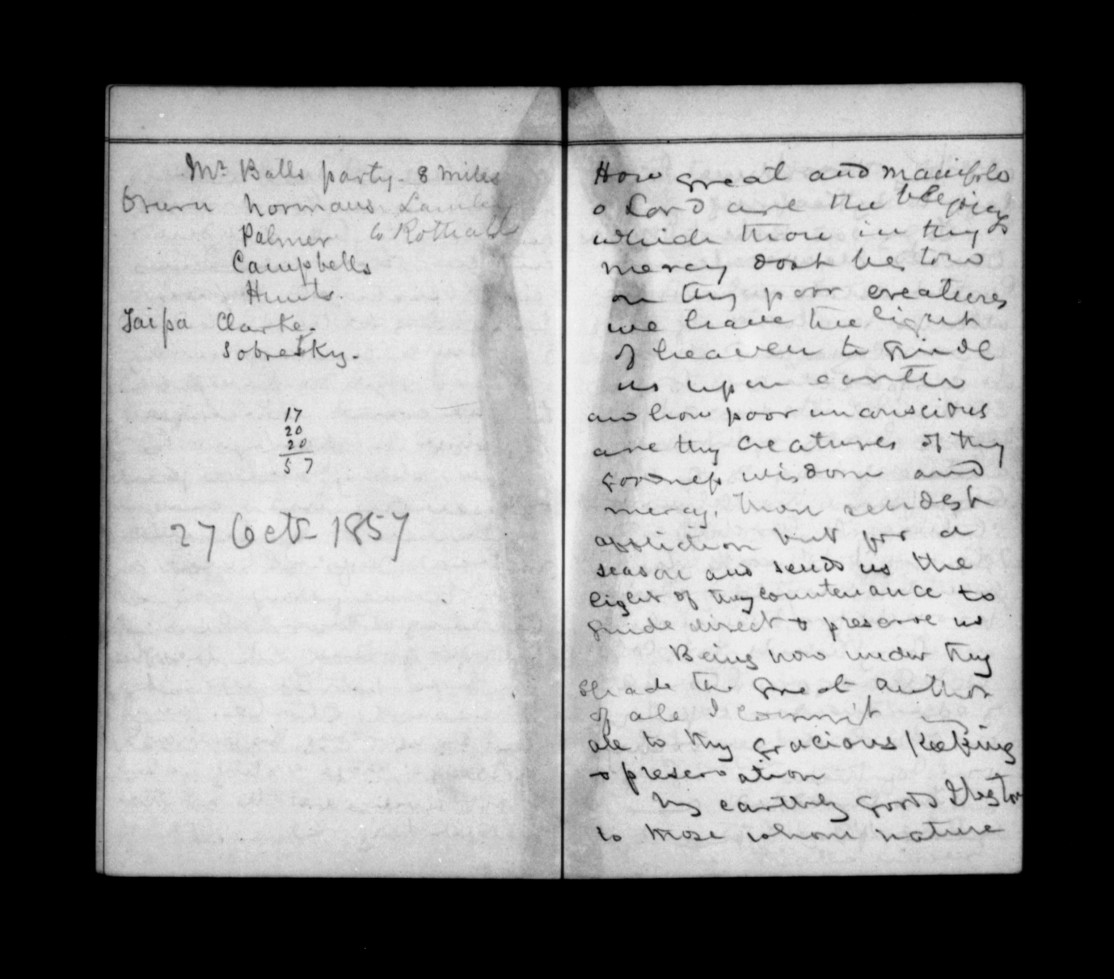 Mr Balls party. 8 miles
Oruru Normans
Palmer to
Campbells
Hunts
Taipa Clarke.
Sobretky.
17
20
20
57
27 Octr 1857
How great and manifold
o Lord are the blessings
which thou in thy
mercy dost bestow
on thy poor creatures
we have the light
of heaven to guide
us upon earth
and how poor unconscious
are thy creatures of thy
goodness wisdom and
mercy. Thou sendest
affliction but for a
season and sends us the
light of thy countenance to
guide direct & preserve us
Being now under thy
shade the great author
of all I commit
all to thy gracious keeping
& preservation
My earthly goods I bestow
to those whom nature